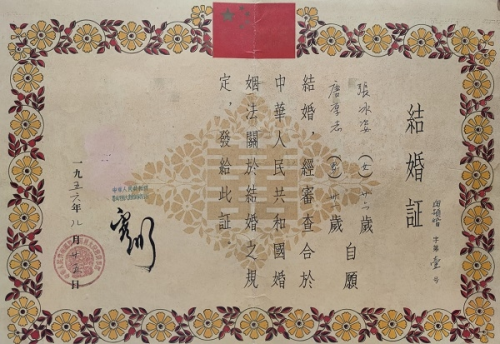 結婚証
字第壹号
張冰姿（女）歲
（男）歲
自願
結婚，經審查合於
中華人民共和國婚
姻法關於結婚之規
定，發給此証．
一九五六年八月廿五日